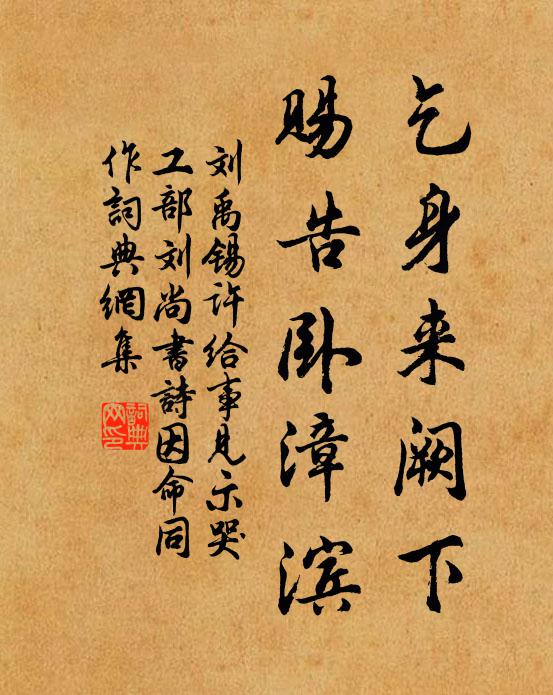 乞身来阙下
赐告卧漳滨
刘禹锡许给事见示哭
工部刘尚書詩因命同
作詞典網集
詞典网印